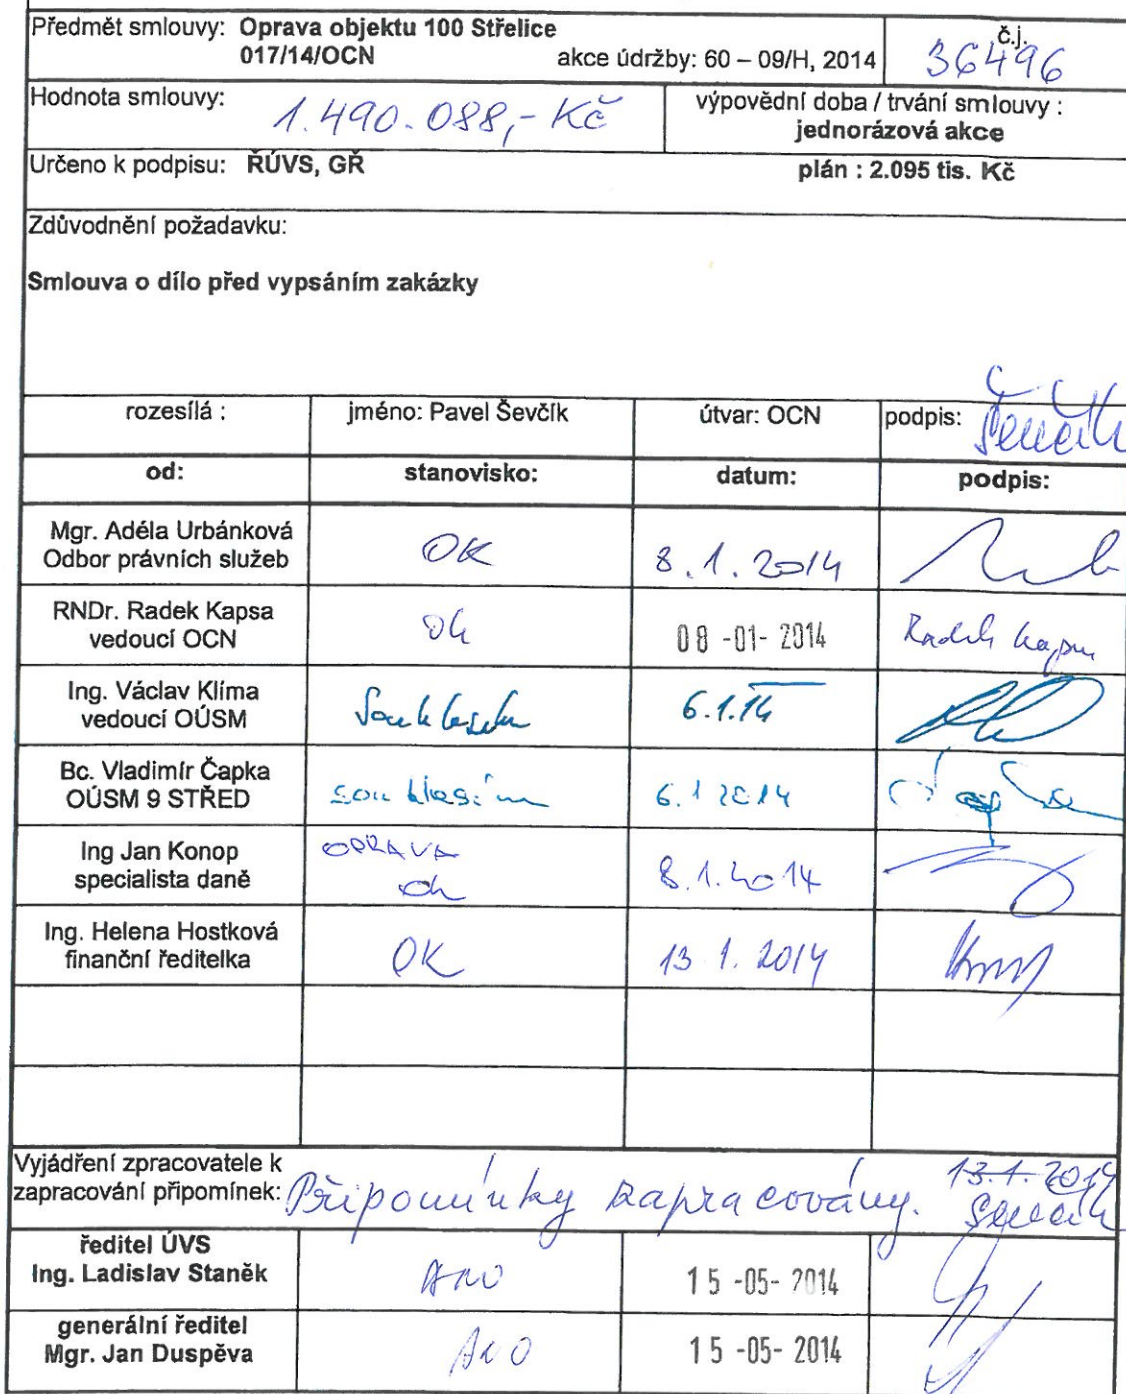 Předmět smlouvy: Oprava objektu 100 Střelice
017/14/OCN akce údržby: 60 – 09/H, 2014
č.j.
36496
Hodnota smlouvy: 1.490.088,- Kč
výpovědní doba / trvání smlouvy :
jednorázová akce
Určeno k podpisu: ŘÚVS, GŘ plán : 2.095 tis. Kč
Zdůvodnění požadavku:
Smlouva o dílo před vypsáním zakázky
rozesílá : jméno: Pavel Ševčík útvar: OCN podpis: Ševčík
od: stanovisko: datum: podpis:
Mgr. Adéla Urbánková
Odbor právních služeb
OK 8.1.2014
RNDr. Radek Kapsa
vedoucí OCN
ok 08 -01- 2014 Radek Kapsa
Ing. Václav Klíma
vedoucí OÚSM
Souhlasím 6.1.14
Bc. Vladimír Čapka
OÚSM 9 STŘED
souhlasím 6.1 2014
Ing Jan Konop
specialista daně
OPRAVA
ok
8.1.2014
Ing. Helena Hostková
finanční ředitelka
OK 13 1. 2014
Vyjádření zpracovatele k
zapracování připomínek: Připomínky zapracovány. 13.1.2014
Ševčík
ředitel ÚVS
Ing. Ladislav Staněk
ANO 15 -05- 2014
generální ředitel
Mgr. Jan Duspěva
ANO 15 -05- 2014